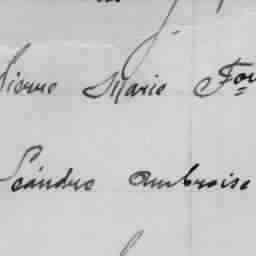 Pierre Marie Fois
Léandre Ambroise